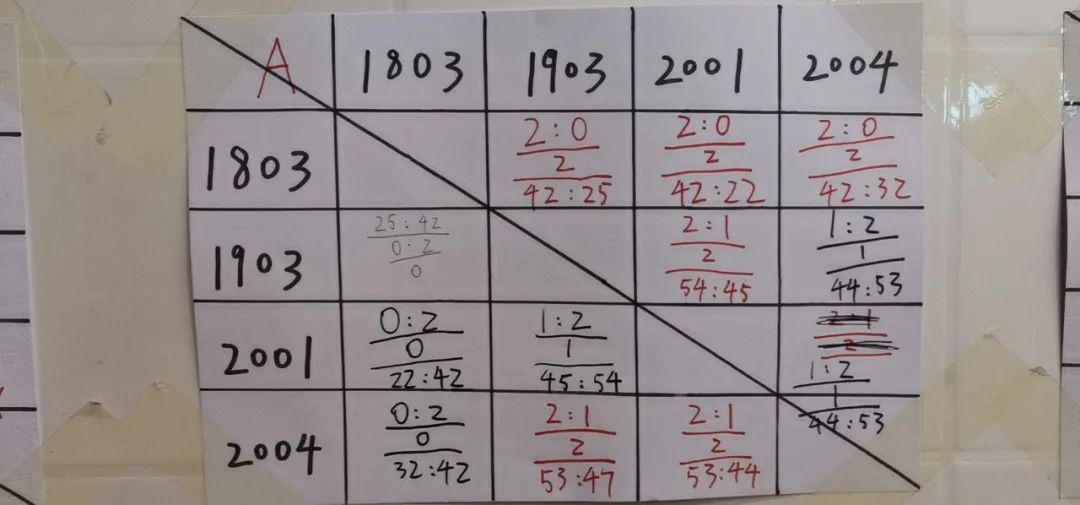 A 1803 1903 2001 2004
1803
2:0
2
42:25
2:0
2
42:22
2:0
2
42:32
1903
25:42
0:2
0
2:1
2
54:45
1:2
1
44:53
2001
0:2
0
22:42
1:2
1
45:54
1:2
1
44:53
2004
0:2
0
32:42
2:1
2
53:47
2:1
2
53:44